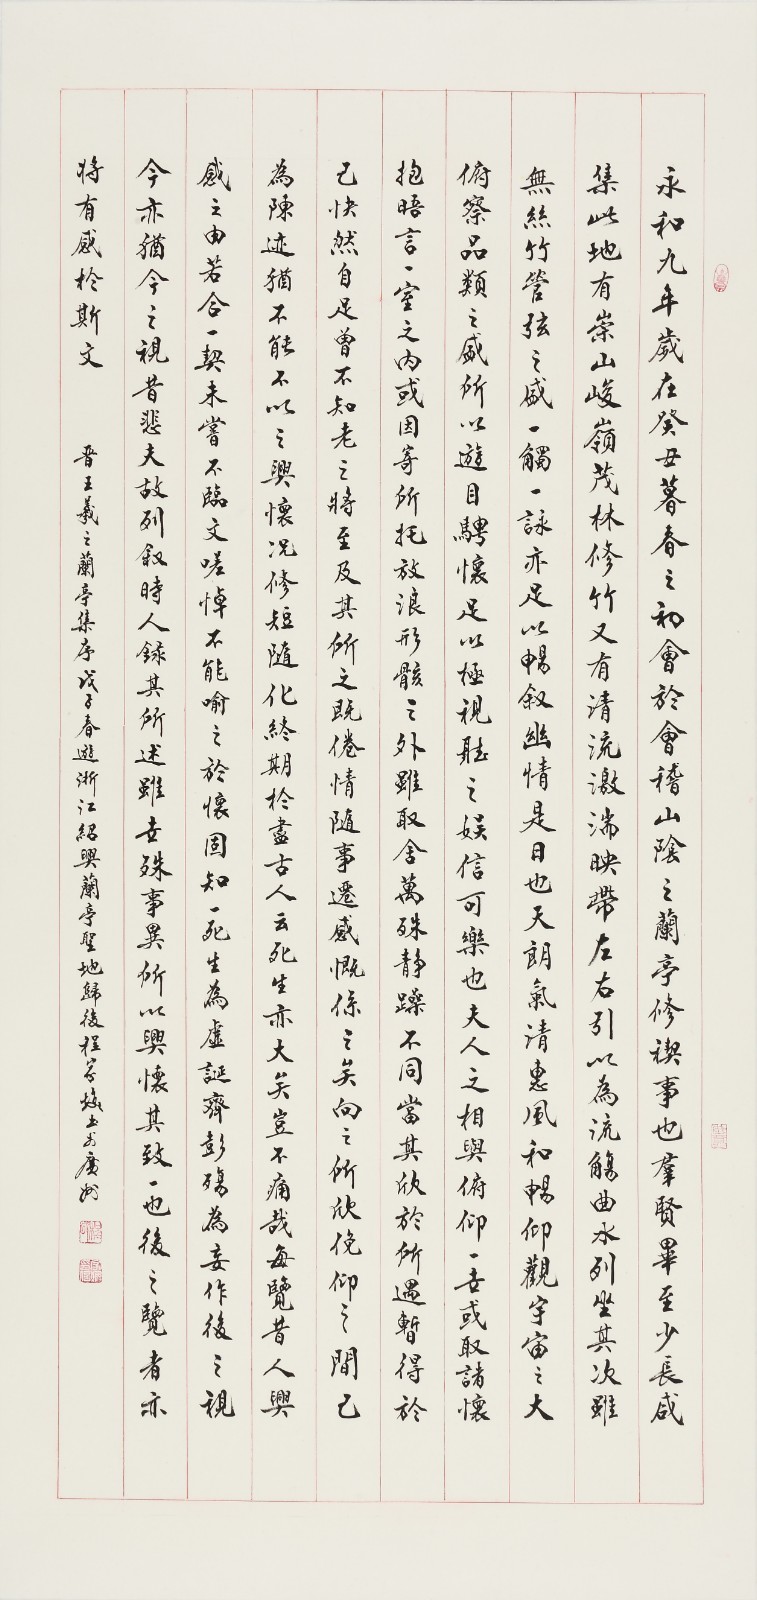 永和九年歲在癸丑暮春之初會於會稽山陰之蘭亭修禊事也羣賢畢至少長咸
集此地有崇山峻嶺茂林修竹又有清流激湍映帶左右引以為流觴曲水列坐其次雖
無絲竹管弦之盛一觴一詠亦足以暢叙幽情是日也天朗氣清惠風和暢仰觀宇宙之大
俯察品類之盛所以遊目騁懷足以極視聽之娛信可樂也夫人之相與俯仰一世或取諸懷
抱晤言一室之內或因寄所托放浪形骸之外雖取舍萬殊静躁不同當其欣於所遇暫得於
己快然自足曾不知老之將至及其所之既倦情隨事遷感慨係之矣向之所欣俛仰之間已
為陳迹猶不能不以之興懷況修短隨化終期於盡古人云死生亦大矣豈不痛哉每覽昔人興
感之由若合一契未嘗不臨文嗟悼不能喻之於懷固知一死生為虛誕齊彭殤為妄作後之視
今亦猶今之視昔悲夫故列叙時人錄其所述雖世殊事異所以興懷其致一也後之覽者亦
將有感於斯文
晉王羲之蘭亭集序戊子春遊浙江紹興蘭亭聖地歸後程家焕書於廣州